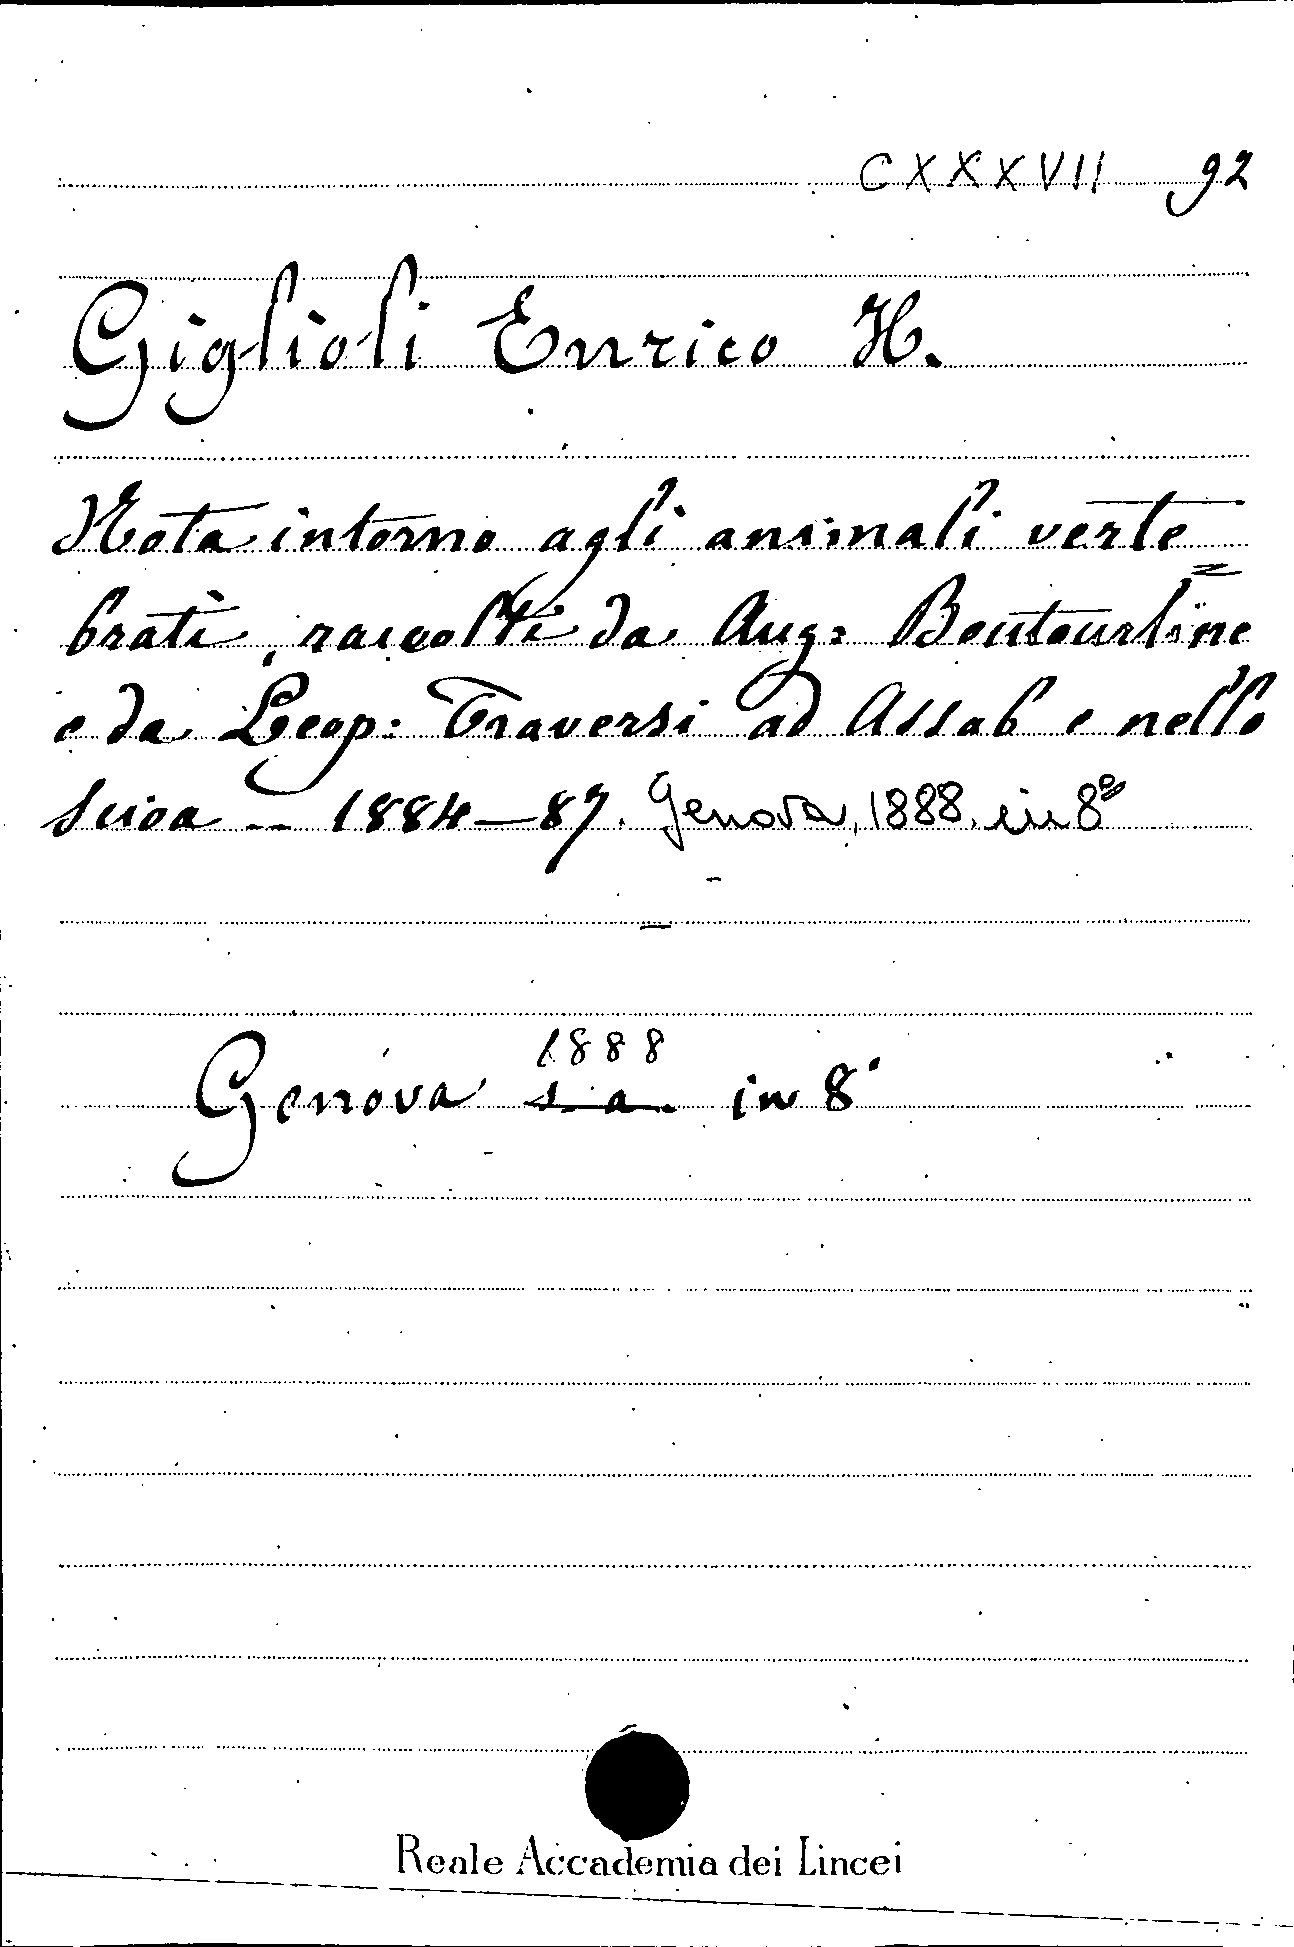 CXXXVII 92
Giglioli Enrico H.
Nota intorno agli animali verte=
brati, raccolti da Aug: Boutourline
e da Leop: Traversi ad Assab e nello
Scioa -- 1884-87. Genova, 1888. in 8°
1888
Genova s. a. in 8°
Reale Accademia dei Lincei